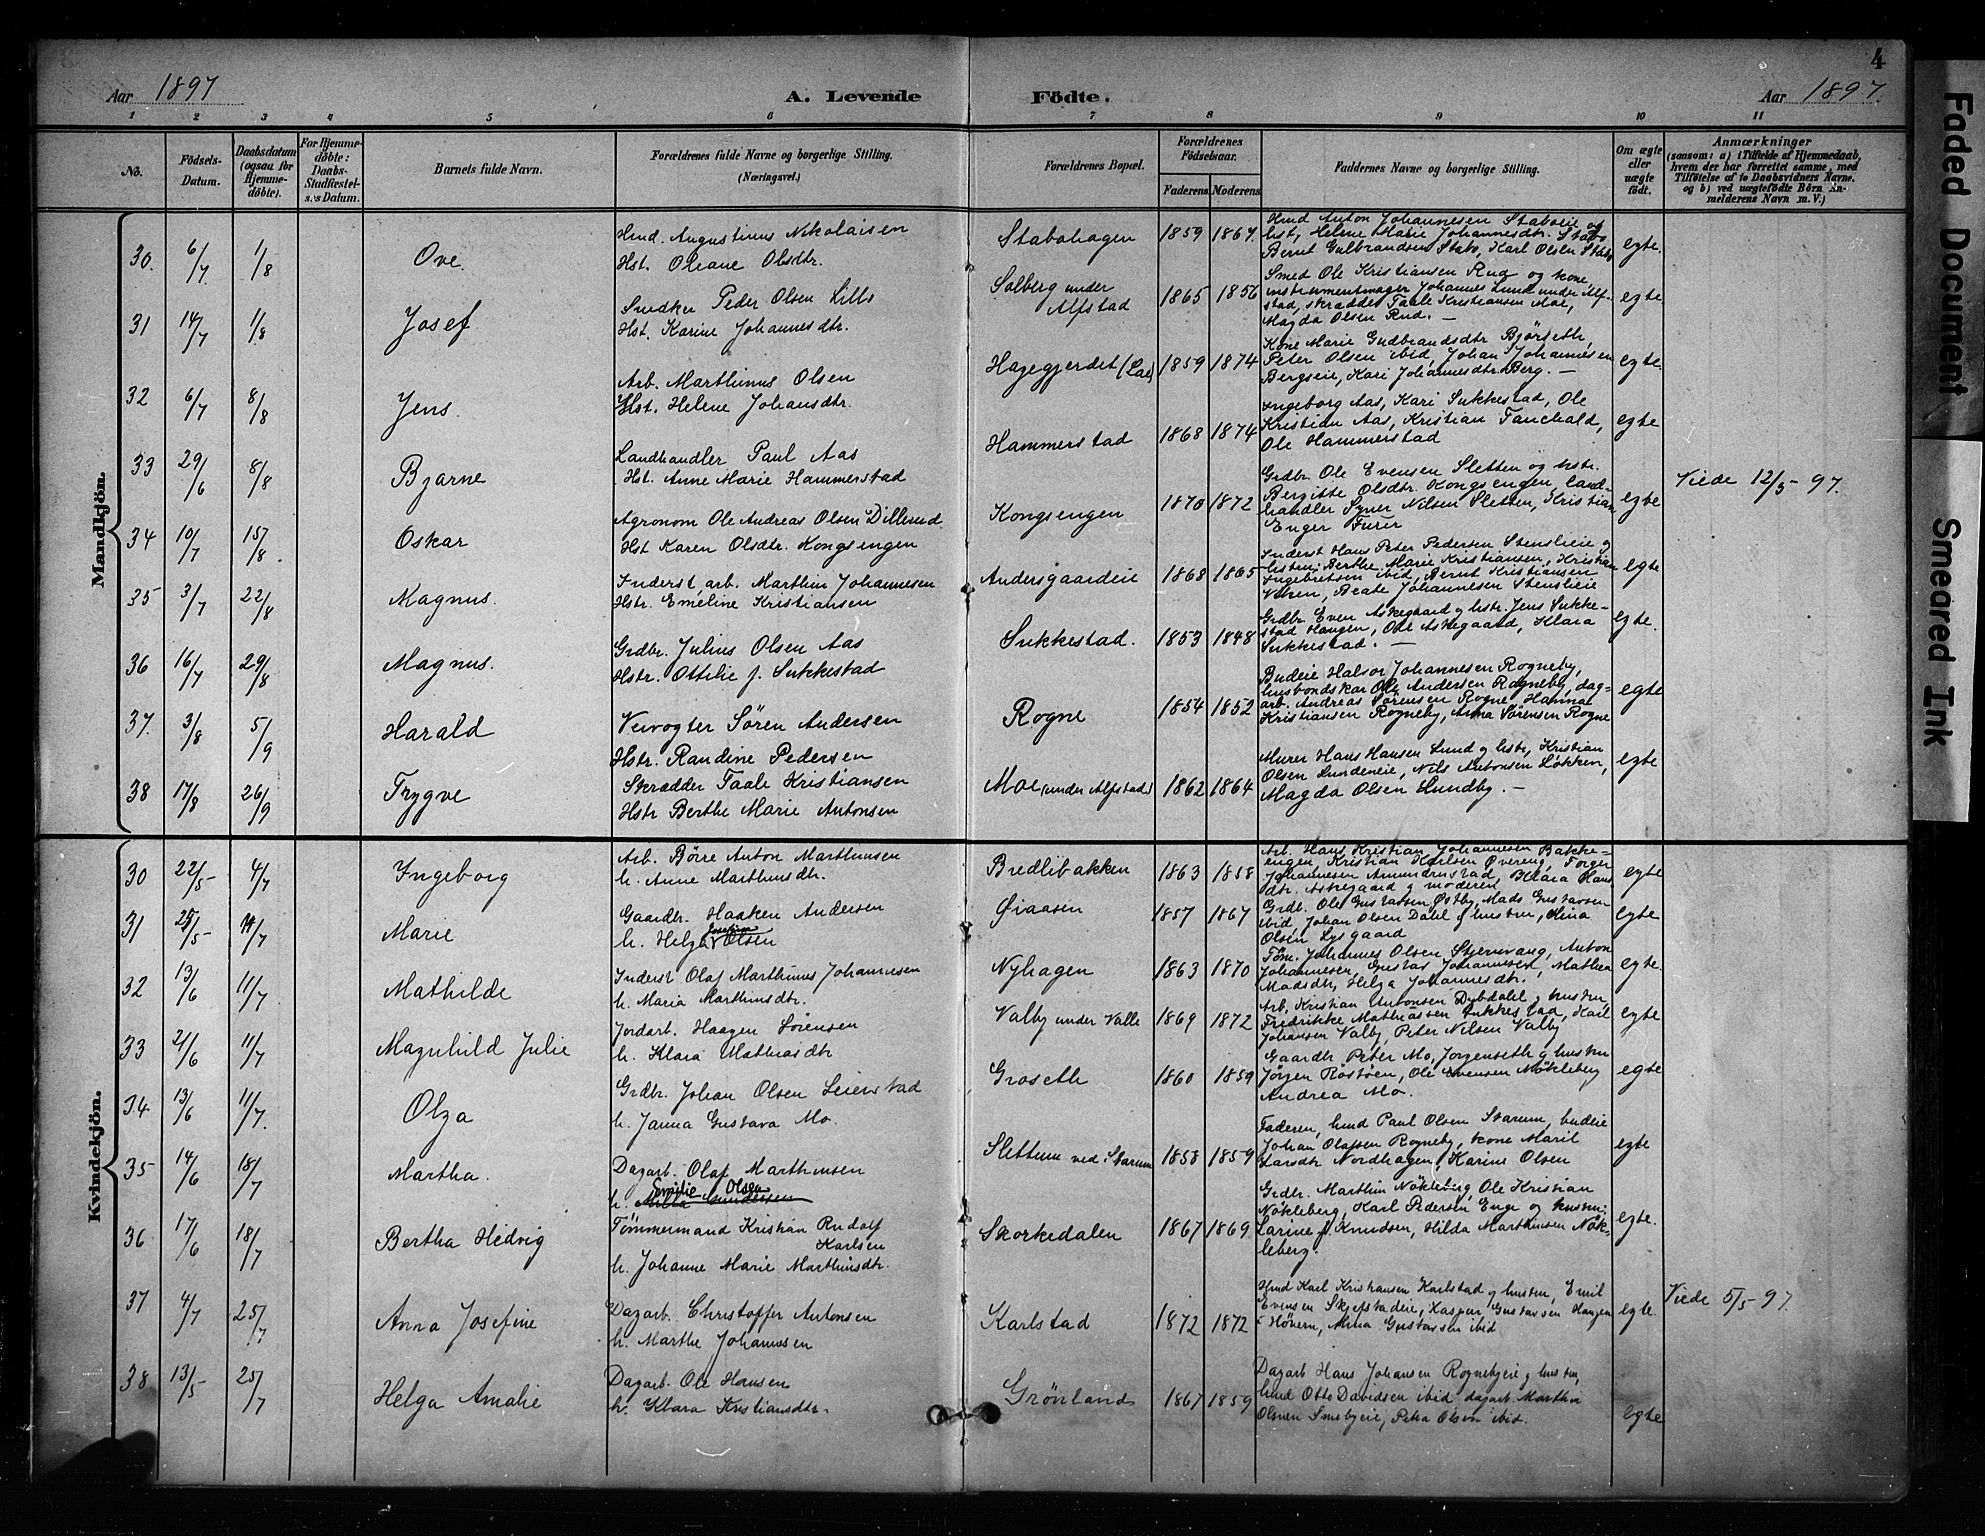 4
Aar 1897
A. Levende Födte.
Aar 1897.
1 2 3 4 5 6 7 8 9 10 11
No.
Födsels-Datum.
Daabsdatum (ogsaa for Hjemme-döbte).
For Hjemme-döbte: Daabs-Stadfæstel-s.'s Datum.
Barnets fulde Navn.
Forældrenes fulde Navne og borgerlige Stilling. (Næringsvei.)
Forældrenes Bopæl.
Forældrenes Födselsaar.
Faderens. Moderens.
Faddernes Navne og borgerlige Stilling.
Om ægte eller uægte födt.
Anmærkninger
(saasom: a) i Tilfælde af Hjemmedaab, hvem der har forrettet samme, med Tilföielse af to Daabsvidners Navne. og b) ved uægtefödte Börn An-melderens Navn m. V.)
Mandkjön.
30. 6/7 1/8 Ove.
Hmd. Augustinus Nikolaisen
Hst. Oleane Olsdtr.
Stabohagen 1859 1867.
Hmd Anton Johannesen Staboeie og
hst, Helene Marie Johannesdtr. Stabo
Bernt Gulbrandsen Stabo, Karl Olsen Stabo
egte.
31 14/7 1/8 Josef
Snedker Peder Olsen Lills
Hst. Karine Johannesdtr.
Solberg under Alfstad 1865 1856
Smed Ole Kristiansen Rud og kone,
instrumentmager Johannes Lund under Alf-
stad, skrædder Taale Kristiansen Moe,
Magda Olsen Rud. —
egte
32 6/7 8/8 Jens.
Arb. Marthinus Olsen
Hst. Helene Johansdtr.
Hagegjerdet 1859 1874
Kone Marie Gudbrandsdtr Bjørseth,
Peter Olsen ibid, Johan Johannesen
Bergseie, Kari Johannesdtr. Berg. —
egte.
33 29/6 8/8 Bjarne
Landhandler Paul Aas
Hst. Anne Marie Hammerstad
Hammerstad 1868 1874
Ingeborg Aas, Kari Sukkestad, Ole
Kristian Aas, Kristian Fauchald,
Ole Hammerstad
egte
Viede 12/5 - 97.
34 10/7 15/8 Oskar
Agronom Ole Andreas Olsen Dillerud
Hst Karen Olsdtr. Kongsengen
Kongsengen 1870 1872
Grdbr. Ole Evensen Sletten og hstr.
Bergitte Olsdtr. Kongsengen, land-
handler Syver Nilsen Sletten, Kristian
Enger Furer
egte
35 3/7 22/8 Magnus.
Inderst, arb. Marthin Johannesen
Hstr. Emeline Kristiansen
Andersgaardeie 1868 1865
Inderst Hans Peter Pedersen Stensleie og
hstru, Berthe Marie Kristiansen, Kristian
Ingebretsen ibid, Bernt Kristiansen
Beate Johannesen Stensleie
egte
36 16/7 29/8 Magnus.
Grdbr. Julius Olsen Aas
Hstr. Ottilie f. Sukkestad
Sukkestad. 1853 1848
Grdbr Even Askegaard og hstr. Jens Sukke-
stad Haugen, Ole Askegaard, Klara
Sukkestad. —
egte.
37. 3/8 5/9 Harald
Veivogter Sören Andersen
Hstr. Randine Pedersen
Rogne 1854 1852
Budeie Halvor Johannesen Rogneby,
husbondskar Ole Andersen Rogneby, dag-
arb. Andreas Sørensen Rogne, Hanna
Kristiansen Rogneby, Anna Sørensen Rogne
egte
38 17/8 26/9 Trygve
Skrædder Taale Kristiansen
Hstr Berthe Marie Antonsen
Moe (under Alfstad) 1862 1864
Murer Hans Hansen Lund og hstr, Kristian
Olsen Lundeneie, Nils Antonsen Løkken,
Magda Olsen Lundby. —
egte
Kvindekjön.
30 22/5 4/7 Ingeborg
Arb. Börre Anton Marthinsen
h. Anne Marthinsdtr.
Bredlibakken 1863 1858
Arb. Hans Kristian Johannesen Bakke-
engen, Kristian Karlsen Övereng, Torger
Johannesen Amundrustad, Klara Hans
dtr. Askegaard og moderen
egte
31 25/5 4/7 Marie
Gaardbr. Haaken Andersen
h. Helga Josefine Olsen
Øiaasen 1857 1867
Grdb. Ole Gustavsen Østby, Mads Gustavsen
ibid, Johan Olsen Dahl og hustru, Mina
Olsen Lysgaard
egte
32 13/6 11/7 Mathilde
Inderst Olaf Marthinus Johannesen
h. Maria Marthinsdtr.
Nyhagen 1863 1870
Töm. Johannes Olsen Stjernvang, Anton
Johannesen, Gustav Johannesen, Mathea
Madsdtr, Helga Johannesdtr.
egte.
33 21/6 11/7 Magnhild Julie
Jordarb. Haagen Sörensen
h. Klara Mathiasdtr
Valby under Valle 1869 1872
Arb. Kristian Antonsen Dybdahl og hustru,
Fredrikke Mathiassen Sukkestad, Karl
Johansen Valby, Peter Nilsen Valby
egte
34 13/6 11/7 Olga
Grdbr. Johan Olsen Leierstad
h. Janna Gustava Mo.
Groseth 1860 1859
Gaardbr. Peter Mo, Jorgenseth og hustru
Jörgen Röstöen, Ole Evensen Nökleberg
Andrea Mo.
egte
35 14/6 18/7 Martha.
Dagarb. Olaf Marthinsen
h. Emilie Olsen
Slettum ved Starum 1858 1859
Faderen, hmd Paul Olsen Starum, budeie
Johan Olafsen Rogneby, kone Marit
Larsdtr Nordhagen, Karine Olsen
egte
36 17/6 18/7 Bertha Hedvig
Tömmermand Kristian Rudolf
Karlsen
h. Johanne Marie Marthinsdtr.
Skorkedalen 1867 1869
Grdbr. Marthin Nökleberg, Ole Kristian
Nökleberg, Karl Pedersen Enge og hustru,
Larine f. Knudsen, Hilda Marthinsen Nök-
leberg.
egte.
37 4/7 25/7 Anna Josefine
Dagarb. Christoffer Antonsen
h. Marthe Johannesen
Karlstad 1872 1872
Hmd Karl Kristiansen Karlstad og hustru, Emil
Evensen Skjefstadeie, Kaspar Gustavsen Haugen
i Hövern, Mina Gustavsen ibid
egte.
Viede 5/5 - 97.
38 13/5 25/7 Helga Amalie
Dagarb. Ole Hansen
h. Klara Kristiansdtr.
Grönland 1867 1859
Dagarb Hans Johansen Rognebyeie og hustru,
hmd Otto Davidsen ibid, dagarb. Marthin
Olsen Smebyeie, Petra Olsen ibid.
egte
Faded Document
Smeared Ink